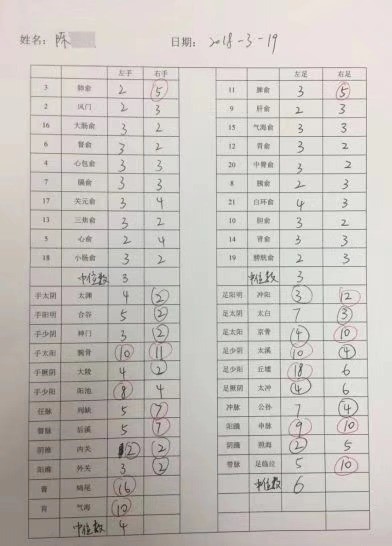 姓名：陈 日期：2018-3-19
左手 右手 左足 右足
3 肺俞 2 5 11 脾俞 3 5
2 风门 2 3 9 肝俞 2 3
16 大肠俞 3 2 15 气海俞 3 3
6 督俞 3 2 12 胃俞 3 2
4 心包俞 3 3 20 中膂俞 3 2
7 膈俞 3 3 8 胰俞 2 3
17 关元俞 3 4 21 白环俞 4 3
13 三焦俞 3 2 10 胆俞 3 2
5 心俞 2 4 14 肾俞 3 3
18 小肠俞 3 2 19 膀胱俞 2 3
中位数 3 中位数 3
手太阴 太渊 4 2 足阳明 冲阳 3 12
手阳明 合谷 5 2 足太阴 太白 7 3
手少阴 神门 3 2 足太阳 京骨 4 10
手太阳 腕骨 10 11 足少阴 太溪 10 4
手厥阴 大陵 4 2 足少阳 丘墟 18 6
手少阳 阳池 8 4 足厥阴 太冲 4 6
任脉 列缺 5 7 冲脉 公孙 7 4
督脉 后溪 5 7 阳蹻 申脉 9 10
阴维 内关 2 2 阴蹻 照海 2 5
阳维 外关 3 2 带脉 足临泣 5 10
膏 鸠尾 16 中位数 6
肓 气海
中位数 4